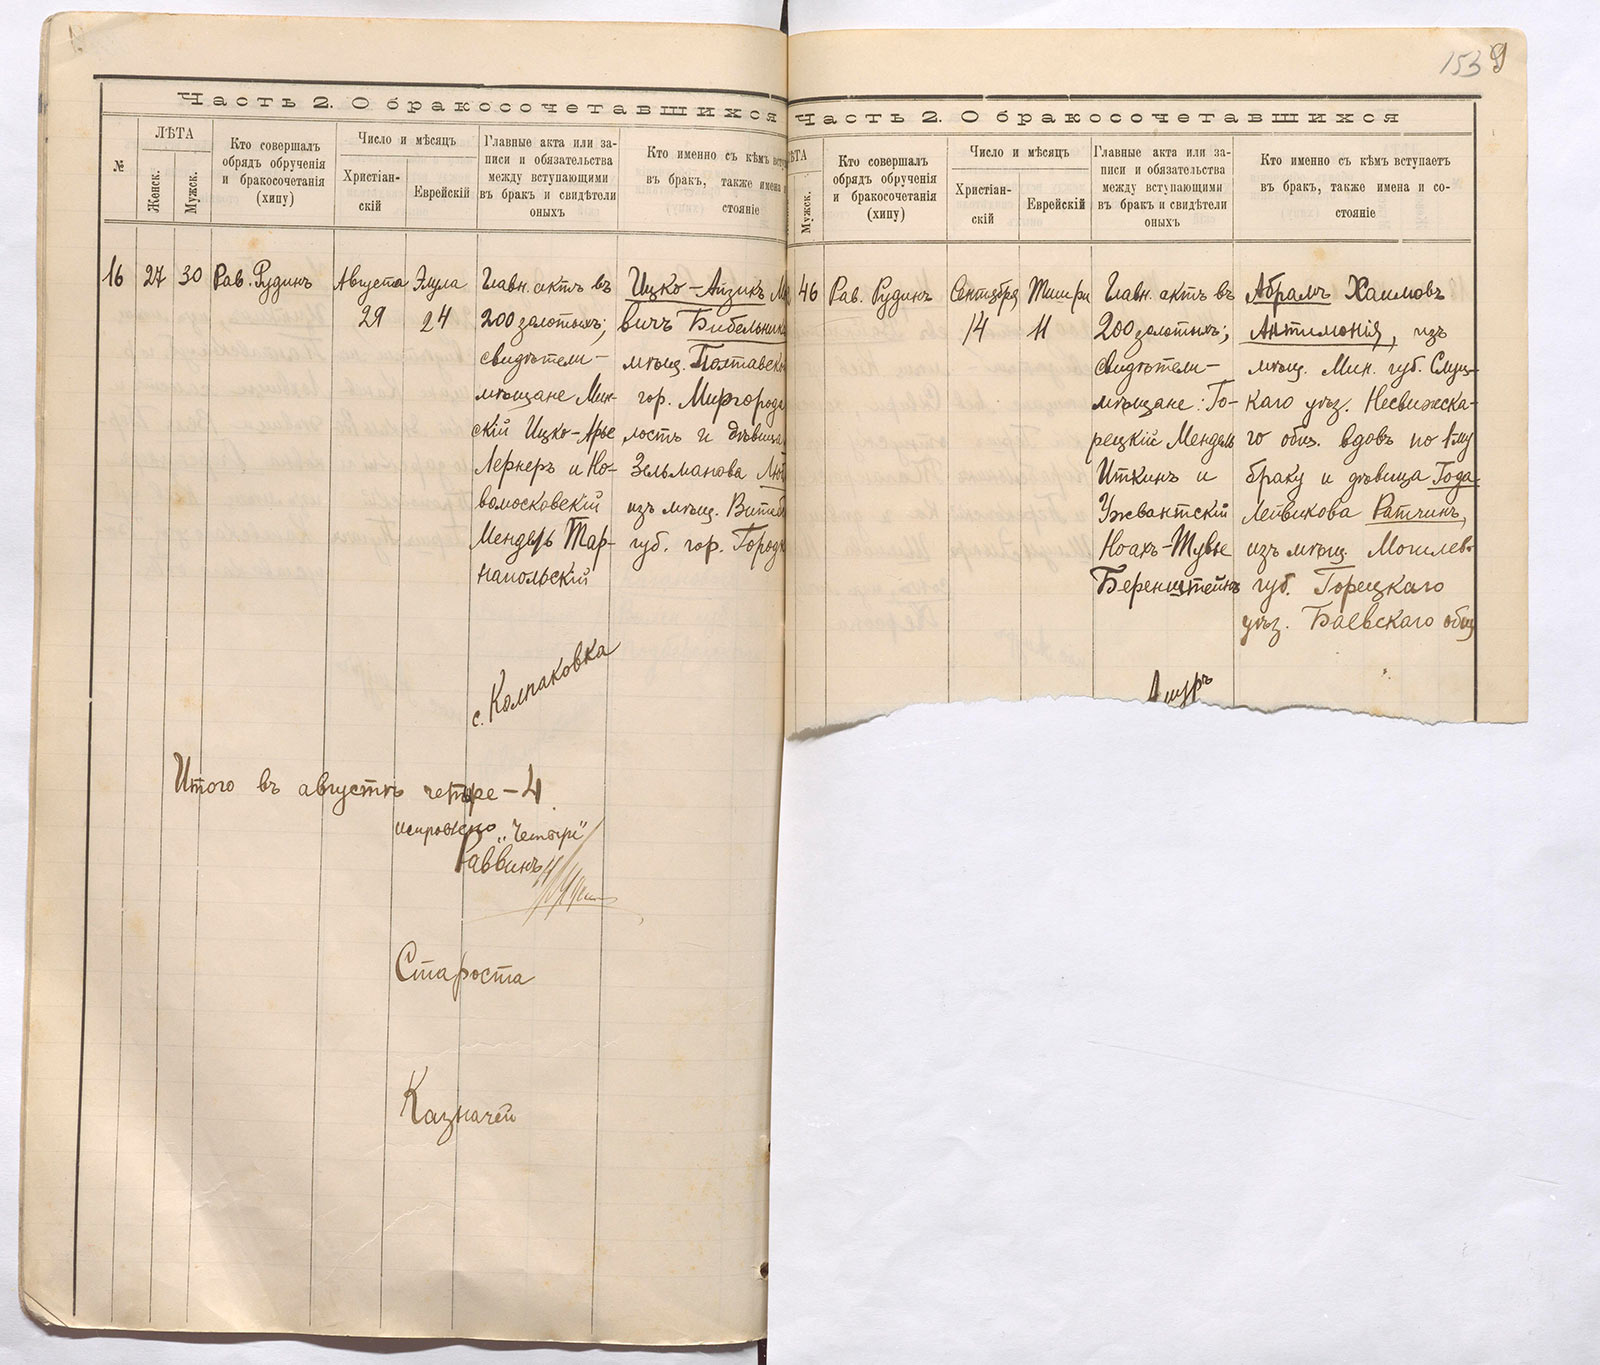 Часть 2. О бракосочетавшихся
№
ЛѢТА
Женск.
Мужск.
Кто совершалъ
обрядъ обрученія
и бракосочетанія
(хипу)
Число и мѣсяцъ
Христіан-
скій
Еврейскій
Главные акта или за-
писи и обязательства
между вступающими
въ бракъ и свидѣтели
оныхъ
Кто именно съ кѣмъ всту
въ бракъ, также имена и
стояніе
16
27
30
Рав. Рудинъ
Августа
29
Элула
24
Главн. актъ въ
200 золотыхъ;
свидѣтели –
мѣщане Мин-
скій Ицко-Арье
Лернеръ и Но-
вомосковскій
Мендель Тар-
напольскій
Ицко-Айзикъ М
вичъ Бибельник
мѣщ. Полтавско
гор. Миргорода
лость и дѣвица
Зельманова Лю
изъ мѣщ. Витеб
губ. гор. Городк
с. Колпаковка
Итого въ августѣ четыре – 4.
исправлено „Четыре“
Раввинъ
Староста
Казначей
153 9
Часть 2. О бракосочетавшихся
ѢТА
Мужск.
Кто совершалъ
обрядъ обрученія
и бракосочетанія
(хипу)
Число и мѣсяцъ
Христіан-
скій
Еврейскій
Главные акта или за-
писи и обязательства
между вступающими
въ бракъ и свидѣтели
оныхъ
Кто именно съ кѣмъ вступаетъ
въ бракъ, также имена и со-
стояніе
46
Рав. Рудинъ
Сентября
14
Тишри
11
Главн. актъ въ
200 золотыхъ;
свидѣтели –
мѣщане: Го-
рецкій Мендель
Иткинъ и
Ужвантскій
Ноахъ-Тувье
Беренштейнъ
Абрамъ Хаимовъ
Антимонія, изъ
мѣщ. Мин. губ. Слуц-
каго уѣз. Несвижска-
го общ. вдовъ по 1му
браку и дѣвица Года
Лейвикова Ратчинъ,
изъ мѣщ. Могилев.
губ. Горецкаго
уѣз. Баевскаго общ